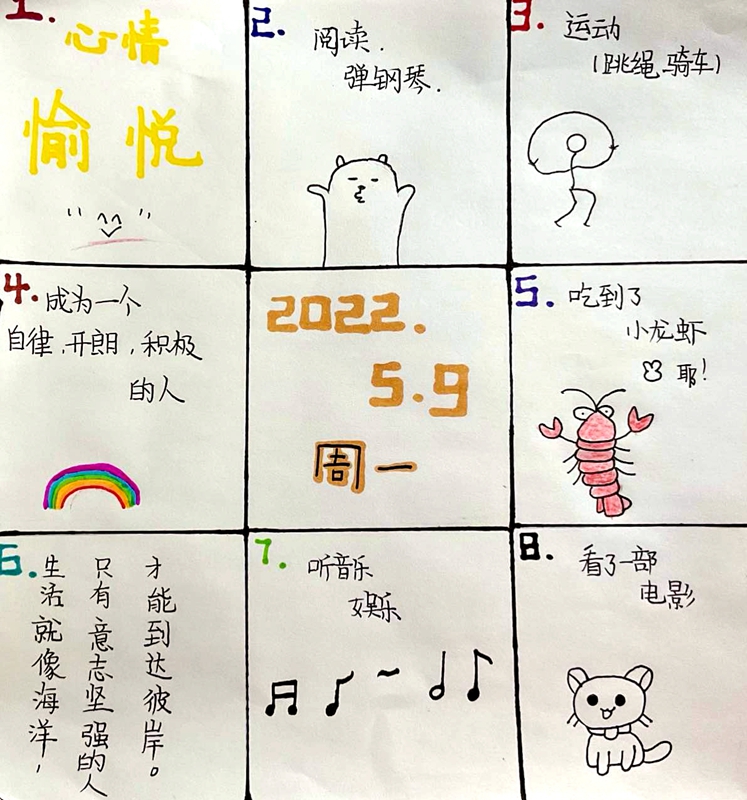 1.
心情
愉悦
2.
阅读.
弹钢琴.
3.
运动
(跳绳.骑车)
4.
成为一个
自律,开朗,积极
的人
2022.
5.9
周一
5.
吃到了
小龙虾
耶!
6.
生活就像海洋,
只有意志坚强的人
才能到达彼岸。
7.
听音乐
娱乐
8.
看了一部
电影